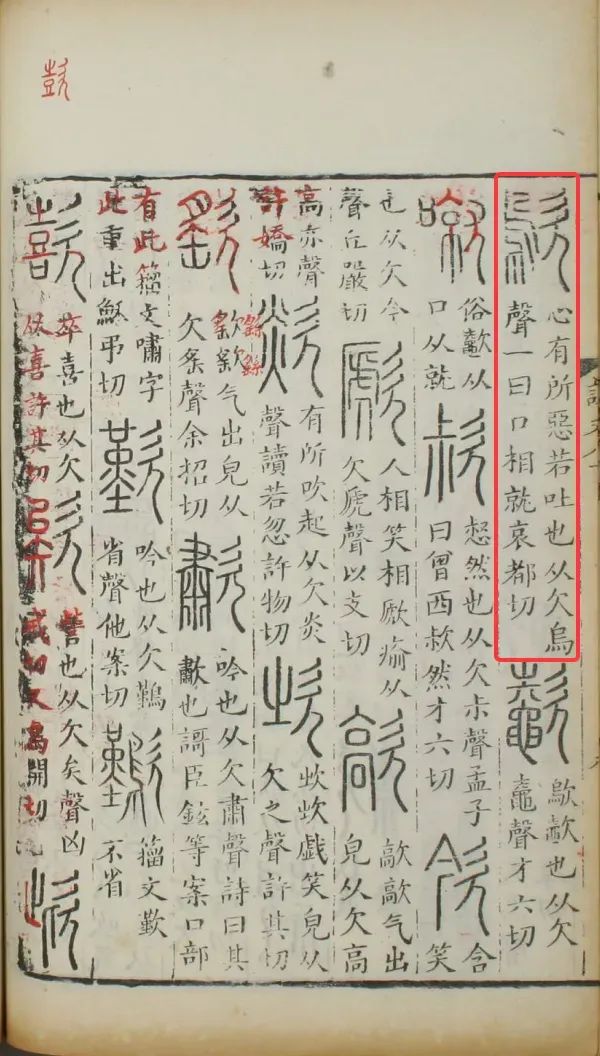 歖
歍
心有所惡若吐也从欠烏
聲一曰口相就哀都切
𣤶
歍𣤶也从欠
鼀聲才六切
噈
俗𣤶从
口从就
㭌然也从欠尗聲孟子
曰曾西㭌然才六切
欦
含
笑
也从欠今
聲丘嚴切
歋
人相笑相歋瘉从
欠虒聲以支切
歊
歊歊气出
皃从欠高
高亦聲
許嬌切
欻
有所吹起从欠炎
聲讀若忽許物切
㰞
㰞㰞戲笑皃从
欠之聲許其切
气出皃从
聲余招切
歗
吟也从欠肅聲詩曰其
歗也謌臣鉉等案口部
有此籀文嘯字
此重出穌弔切
歎
吟也从欠鷬
省聲他案切
籀文歎
不省
歖
卒喜也从欠
从喜許其切
欸
訾也从欠矣聲凶
戒切又烏開切